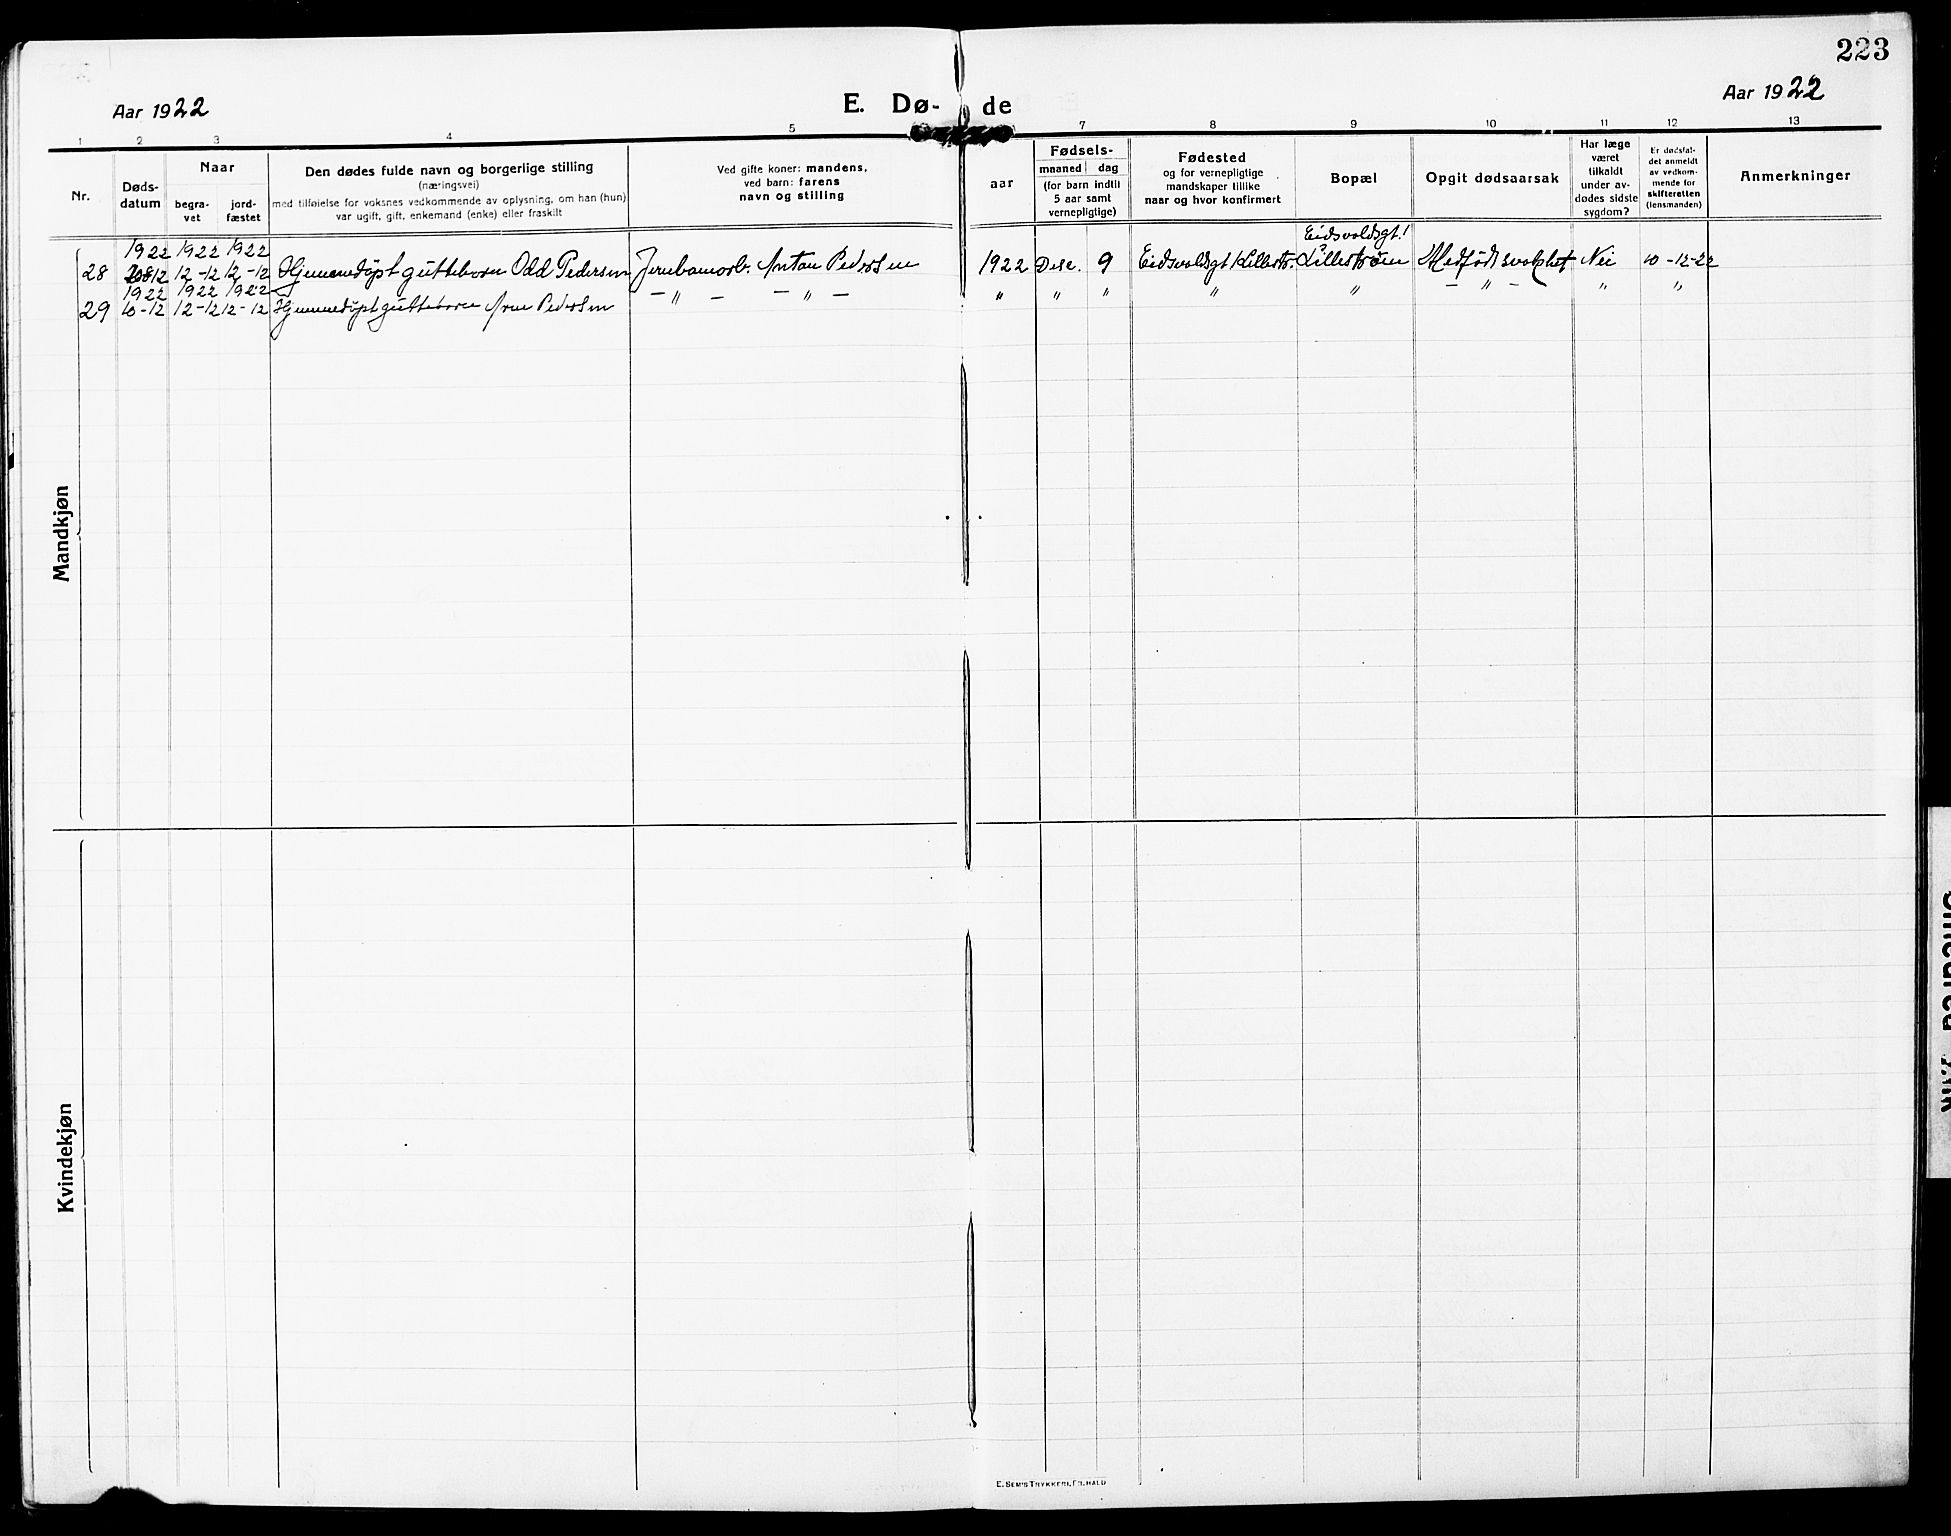 223
Aar 1922
E. Dø-
de
Aar 1922
1 2 3 4 5 7 8 9 10 11 12 13
Nr.
Døds-
datum
Naar
begra-
vet
jord-
fæstet
Den dødes fulde navn og borgerlige stilling
(næringsvei)
med tilføielse for voksnes vedkommende av oplysning, om han (hun)
var ugift, gift, enkemand (enke) eller fraskilt
Ved gifte koner: mandens,
ved barn: farens
navn og stilling
aar
Fødsels-
maaned dag
(for barn indtil
5 aar samt
vernepligtige)
Fødested
og for vernepligtige
mandskaper tillike
naar og hvor konfirmert
Bopæl
Opgit dødsaarsak
Har læge
været
tilkaldt
under av-
dødes sidste
sygdom?
Er dødsfal-
det anmeldt
av vedkom-
mende for
skifteretten
(lensmanden)
Anmerkninger
1922 1922 1922 Eidsvoldsgt.!
28 12-12 12-12 Hjemmedøpt guttebarn Odd Pedersen Jernbanearb. Anton Pedersen 1922 Dese. 9 Eidsvoldsgt Lillestr. Lillestrøm Medfødt svakhet Nei 10-12-22
1922 1922 1922 — " — — " — " " " " " — " — " "
29 10-12 12-12 12-12 Hjemmedøpt guttebarn Arne Pedersen
Mandkjøn
Kvindekjøn
E. SEM'S TRYKKERI, FR.HALD